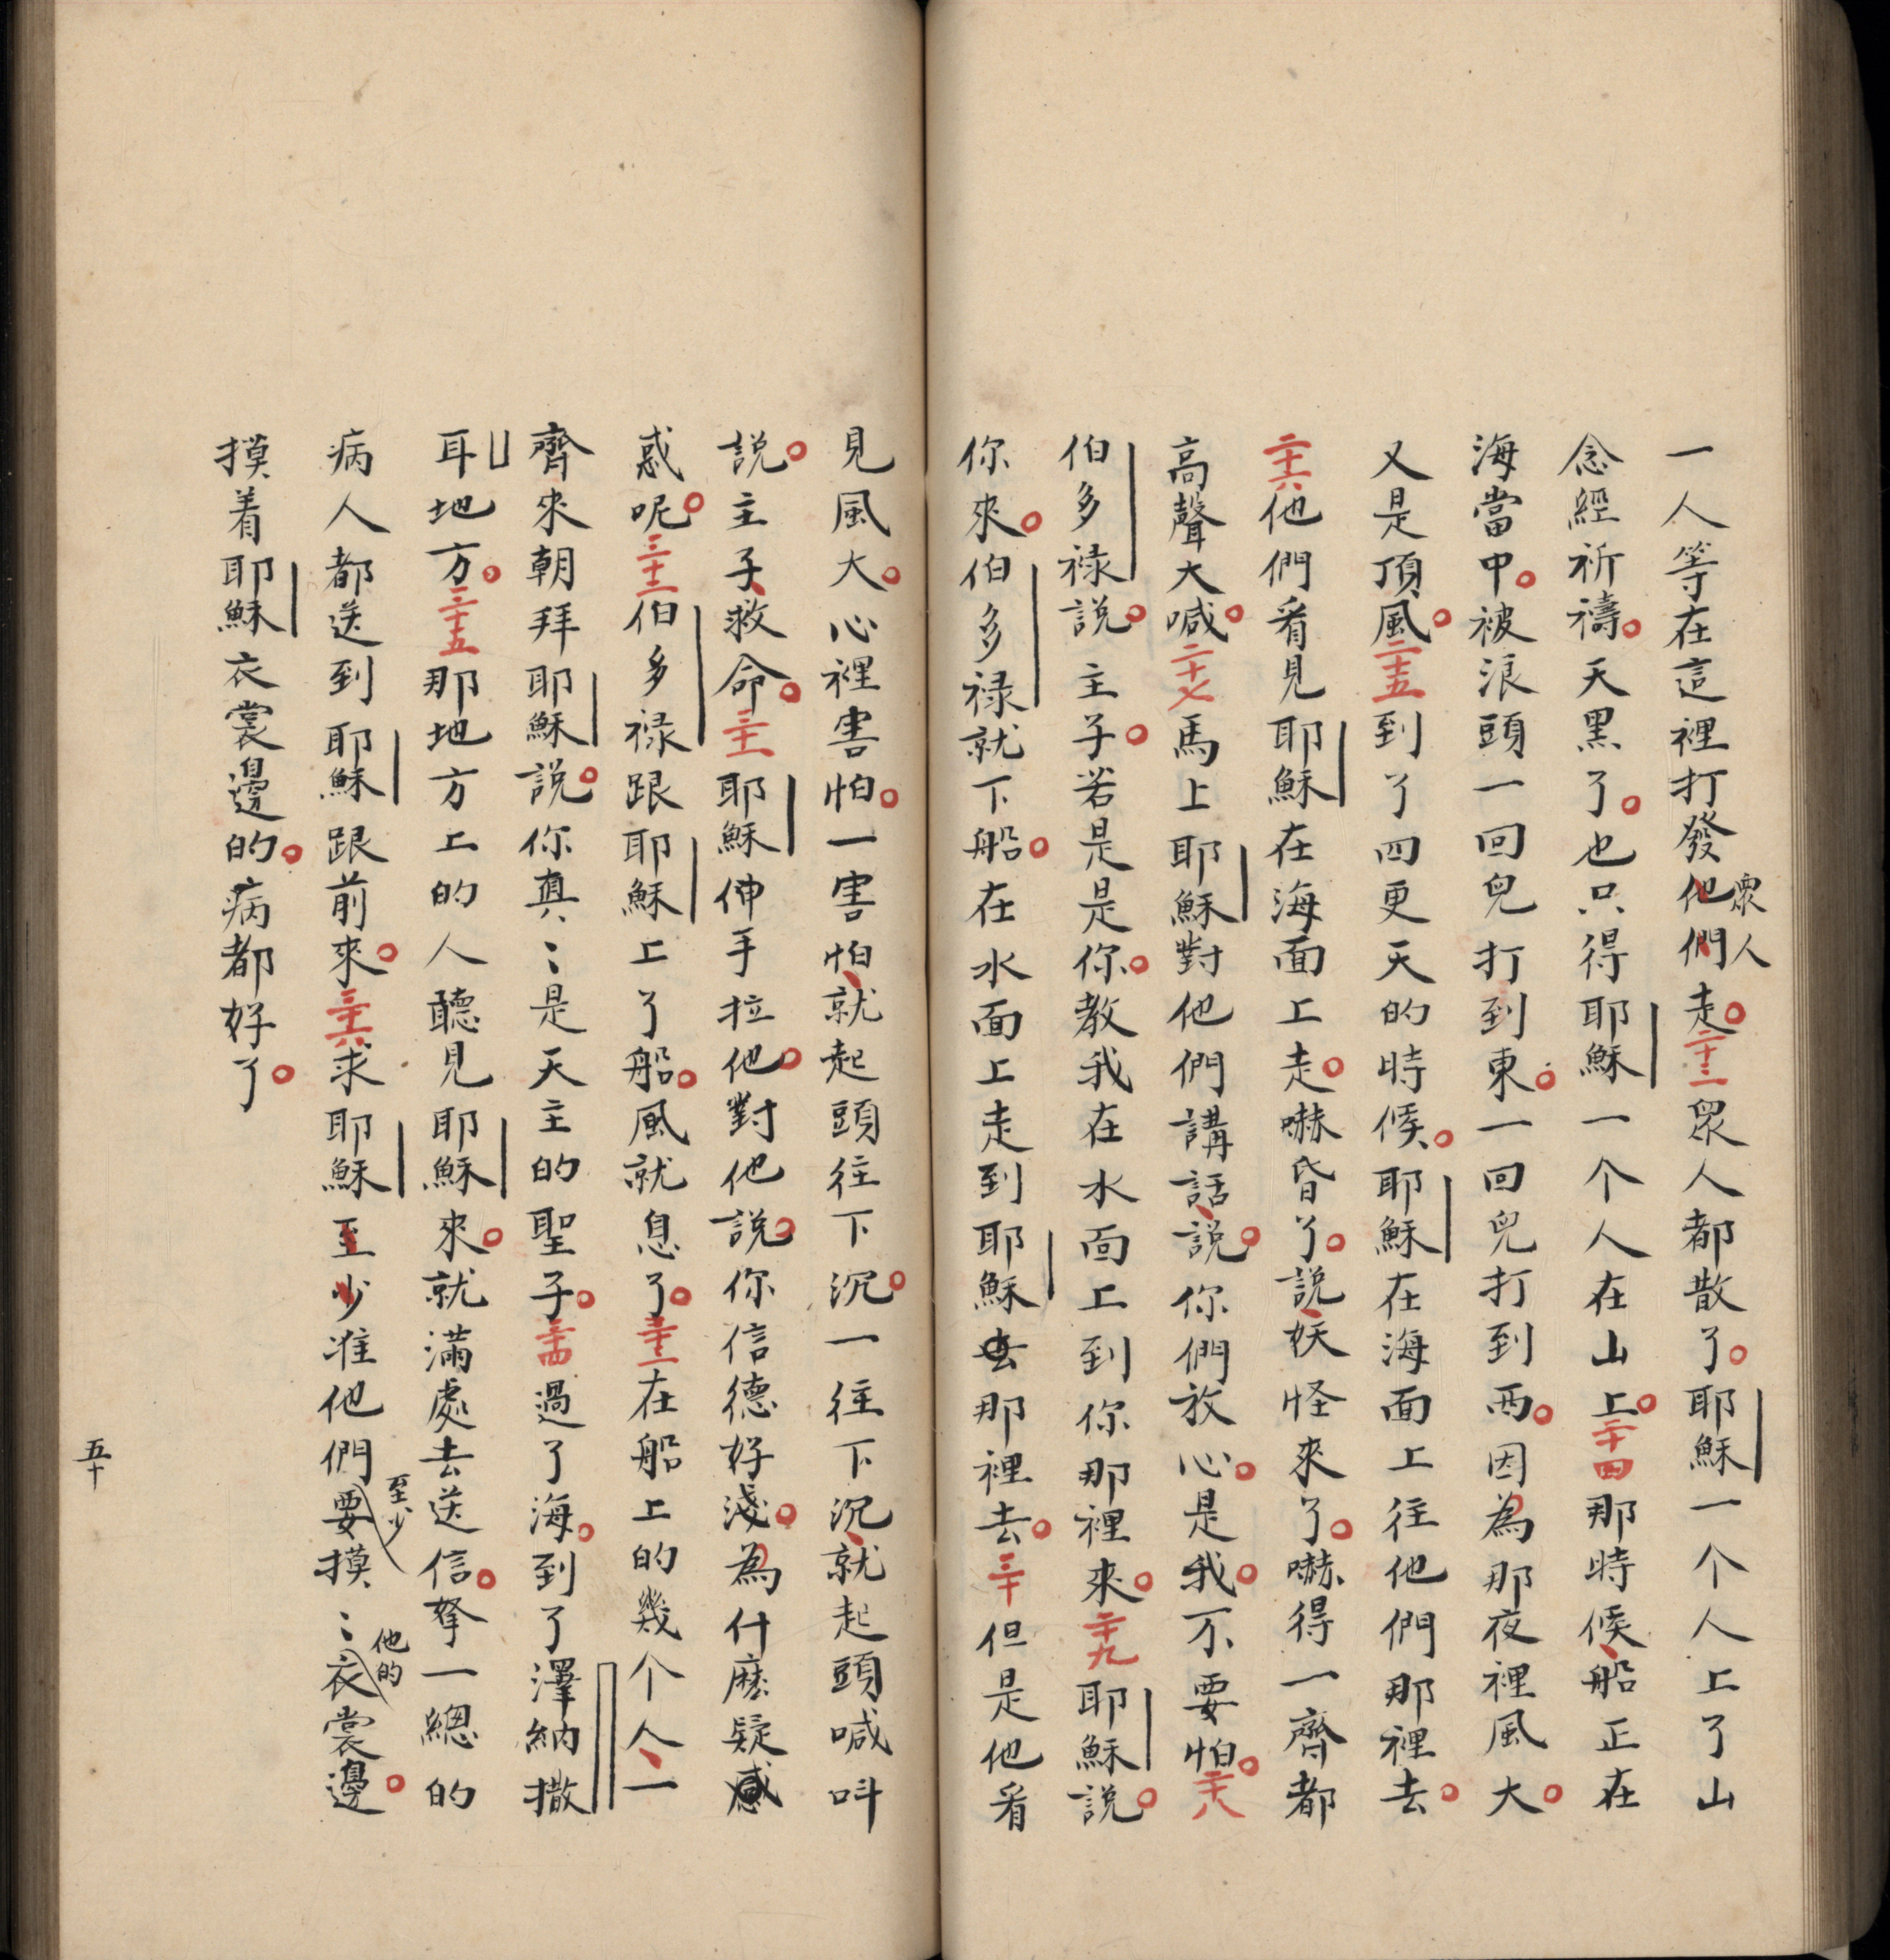 一人等在這裡打發他們走。二十三眾人都散了。耶穌一个人上了山
眾人
念經祈禱。天黑了。也只得耶穌一个人在山上。二十四那時候、船正在
海當中。被浪頭一回兒打到東。一回兒打到西。因為那夜裡風大。
又是頂風。二十五到了四更天的時候。耶穌在海面上往他們那裡去。
二十六他們看見耶穌在海面上走。嚇昏了。說、妖怪來了。嚇得一齊都
高聲大喊。二十七馬上耶穌對他們講話、說。你們放心。是我。不要怕。二十八
伯多祿說。主子。若是是你。教我在水面上到你那裡來。二十九耶穌說。
你來。伯多祿就下船。在水面上走到耶穌那裡去。三十但是他看
見風大。心裡害怕。一害怕、就起頭往下沉。一往下沉、就起頭喊叫
說。主子、救命。三十一耶穌伸手拉他。對他說。你信德好淺。為什麽疑
惑呢。三十二伯多祿跟耶穌上了船。風就息了。三十三在船上的幾个人、一
齊來朝拜耶穌說。你真〻是天主的聖子。三十四過了海。到了澤納撒
耳地方。三十五那地方上的人聽見耶穌來。就滿處去送信。拏一總的
病人都送到耶穌跟前來。三十六求耶穌至少准他們要摸〻衣裳邊。
至少
他的
摸着耶穌衣裳邊的。病都好了。
五十